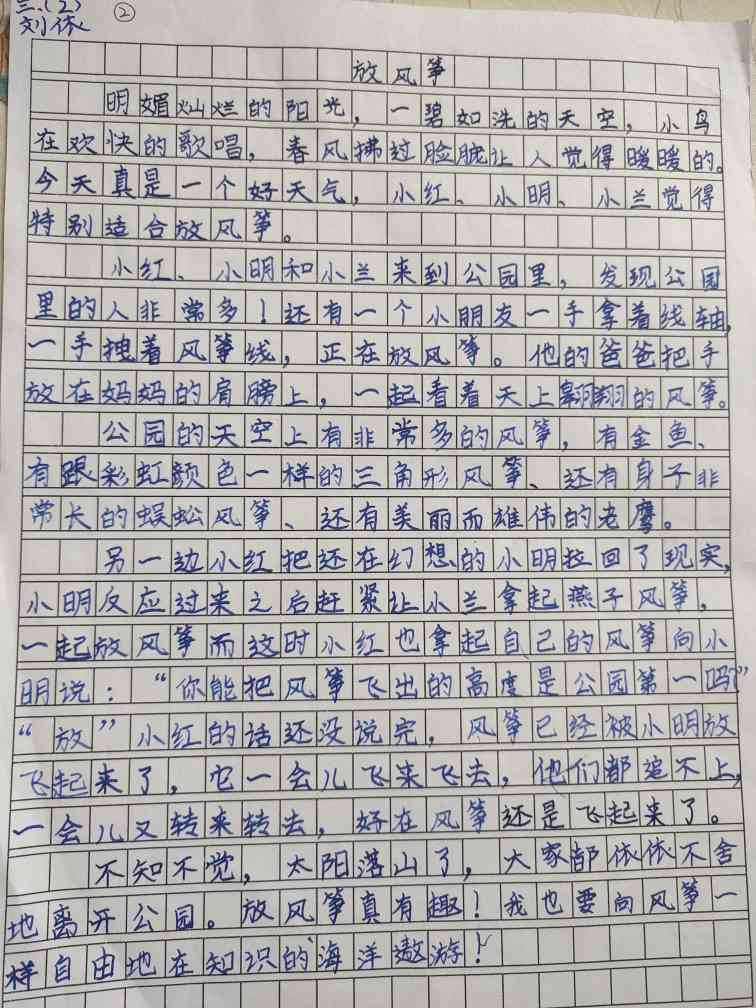 三.(2)
刘依
②
放风筝
明媚灿烂的阳光，一碧如洗的天空，小鸟
在欢快的歌唱，春风拂过脸庞让人觉得暖暖的。
今天真是一个好天气，小红、小明、小兰觉得
特别适合放风筝。
小红、小明和小兰来到公园里，发现公园
里的人非常多！还有一个小朋友一手拿着线轴，
一手拽着风筝线，正在放风筝。他的爸爸把手
放在妈妈的肩膀上，一起看着天上翩翩的风筝。
公园的天空上有非常多的风筝，有金鱼、
有跟彩虹颜色一样的三角形风筝、还有身子非
常长的蜈蚣风筝、还有美丽而雄伟的老鹰。
另一边小红把还在幻想的小明拉回了现实，
小明反应过来之后赶紧让小兰拿起燕子风筝，
一起放风筝而这时小红也拿起自己的风筝向小
明说：“你能把风筝飞出的高度是公园第一吗？”
“放”小红的话还没说完，风筝已经被小明放
飞起来了，它一会儿飞来飞去，他们都追不上，
一会儿又转来转去，好在风筝还是飞起来了。
不知不觉，太阳落山了，大家都依依不舍
地离开公园。放风筝真有趣！我也要向风筝一
样自由地在知识的海洋遨游！